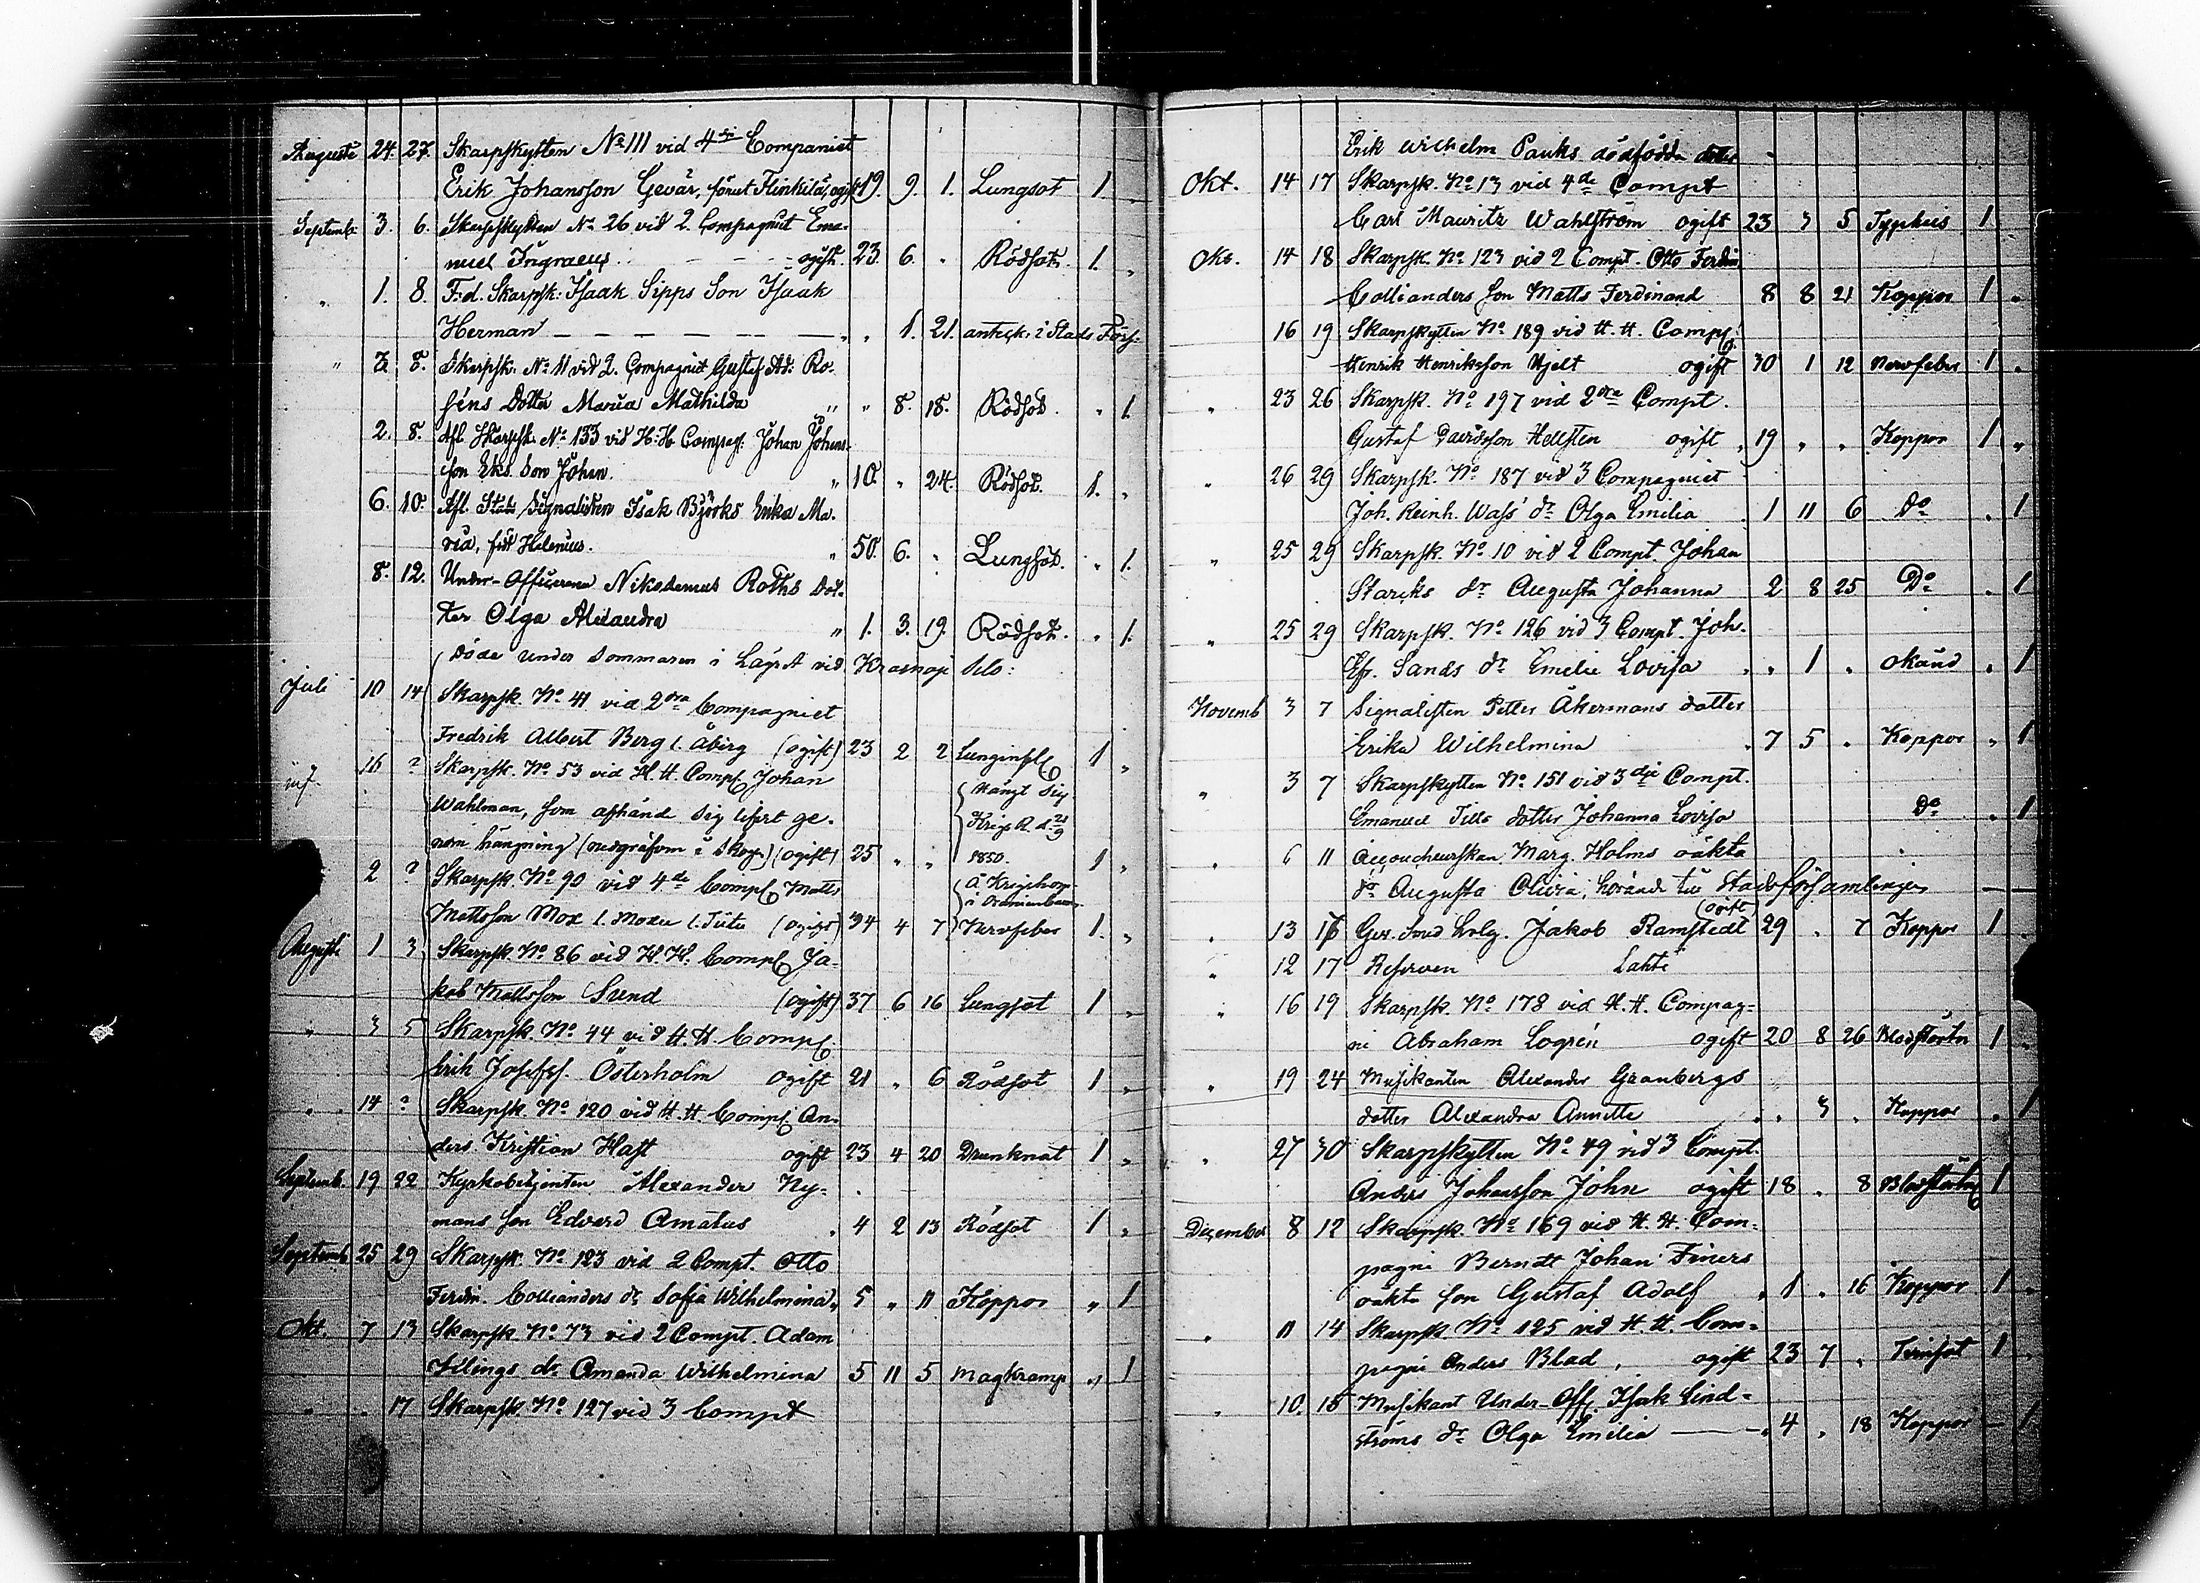 Augusti 24. 27. Skarpskytten No 111 vid 4de Companiet
Erik Johansson Gevär, förut Flinkilä, ogift 19. 9. 1. Lungsot 1.
Septemb. 3. 6. Skarpskytten No 26 vid 2. Compagniet Ema-
nuel Ingraeus ogift. 23. 6. " Rödsot. 1. "
" 1. 8. F.d. Skarpsk: Isaak Sipps Son Isaak
Herman " " 1. 21. anteck. i Stads Förs:
" 3. 8. Skarpsk. No 11 vid 2. Compagniet Gustaf Ad: Ro-
séns Dotter Maria Mathilda " " 8. 18. Rödsot. " 1.
2. 8. Afl. Skarpsk. No 133 vid H:H Compag: Johan Johans-
son Eks Son Johan. " 10. " 24. Rödsot. 1. "
6. 10. Afl. Signalisten Isak Björks Enka Ma-
ria, född Helenius. " 50. 6. " Lungsot. " 1.
8. 12. Under-Officeren Nikodemus Roths Dot-
ter Olga Alexandra " 1. 3. 19. Rödsot. " 1.
Döde under Sommaren i Lägret vid Krasnoje Selo:
Juli 10 14 Skarpsk. No 41 vid 2dra Compagniet
Fredrik Albert Berg l. Åberg (ogift) 23 2 2 Lunginfl 1 "
16 ? Skarpsk. No 53 vid H.H. Comp Johan
Wahlman, som afhände sig lifvet ge- Hängt Sig
Krigs R. d. 21/9
nom hängning (nedgräfven i Skog.) (ogift) 25 " " 1850. 1 "
2 ? Skarpsk. No 90 vid 4de Comp Matts Å Krigshosp
i Oranienbaum
Mattsson Mox (ogift) 34 4 7 Nervfeber 1. "
Augusti 1 3 Skarpsk. No 86 vid H.H. Comp Ja-
kob Mattsson Sund (ogift) 37 6 16 Lungsot 1 "
" 3 5 Skarpsk. No 44 vid H.H. Comp
Erik Josefss. Österholm ogift 21 " 6 Rödsot 1 "
" 14 ? Skarpsk. No 120 vid H.H. Comp. An-
ders Kristian Hast ogift 23 4 20 Drunknat 1 "
Septemb. 19 22 Kyrkobetjenten Alexander Ny-
mans son Edvard Amatus " 4 2 13 Rödsot 1 "
Septemb 25 29 Skarpsk. No 123 vid 2 Compt. Otto
Ferdin. Collianders dr Sofia Wilhelmina " 5 " 11 Koppor " 1
Okt. 7 13 Skarpsk. No 73 vid 2 Compt. Adam
Kilings dr Amanda Wilhelmina 5 11 5 Magkramp " 1
" " 17 Skarpsk. No 127 vid 3 Compt
Erik Wilhelm Pauks dödfödda dotter
Okt. 14 17 Skarpsk. No 13 vid 4de Compt
Carl Mauritz Wahlström ogift 23 3 5 Typhus 1
Okt. 14 18 Skarpsk. No 123 vid 2 Compt. Otto Ferdin
Collianders son Matts Ferdinand 8 8 21 Koppor 1 "
16 19 Skarpskytten No 189 vid H.H. Comp
Henrik Henriksson Hjelt ogift 30 1 12 Nervfeber 1 "
" 23 26 Skarpsk. No 197 vid 2dra Compt.
Gustaf Davidsson Hellsten ogift 19 " " Koppor 1 "
" 26 29 Skarpsk. No 187 vid 3 Compagniet
Joh. Reinh. Wass' dr Olga Emilia 1 11 6 Do " 1
" 25 29 Skarpsk. No 10 vid 2 Compt. Johan
Starcks dr Augusta Johanna 2 8 25 Do " 1
" 25 29 Skarpsk. No 126 vid 3 Compt. Joh.
Efr. Sands dr Emelie Lovisa " 1 " okänd " 1
Novemb 3 7 Signalisten Petter Åkermans dotter
Erika Wilhelmina " 7 5 " Koppor " 1
" 3 7 Skarpskytten No 151 vid 3dje Compt.
Emanuel dotter Johanna Lovisa Do " 1
" 6 11 Accoucheurskan Marg. Holms oäkta
dr Augusta Olivia, hörande till Stadsförsamlingen
" 13 16 Gev. Smed Lärlg. Jakob Ramstedt (ogift) 29 " 7 Koppor 1
" 12 17 Reserven Lahti
" 16 19 Skarpsk. No 178 vid H.H. Compag-
ni Abraham Logrén ogift 20 8 26 Blodstörtn 1 "
" 19 24 Musikanten Alexander Granbergs
dotter Alexandra Annette " " 3 " Koppor " 1
" 27 30 Skarpskytten No 49 vid 3 Compt.
Anders Johansson John ogift 18 " 8 Blodstörtn 1
December 8 12 Skarpsk. No 169 vid H.H. Com-
pagni Berndt Johan Finers
oäkta son Gustaf Adolf " 1 " 16 Koppor 1 "
" 11 14 Skarpsk. No 125 vid H.H. Com-
pagni Anders Blad, ogift 23 7 " 1 "
" 10. 15 Musikant Under-Off. Isak Lind-
ströms dr Olga Emilia " 4 " 18 Koppor — 1